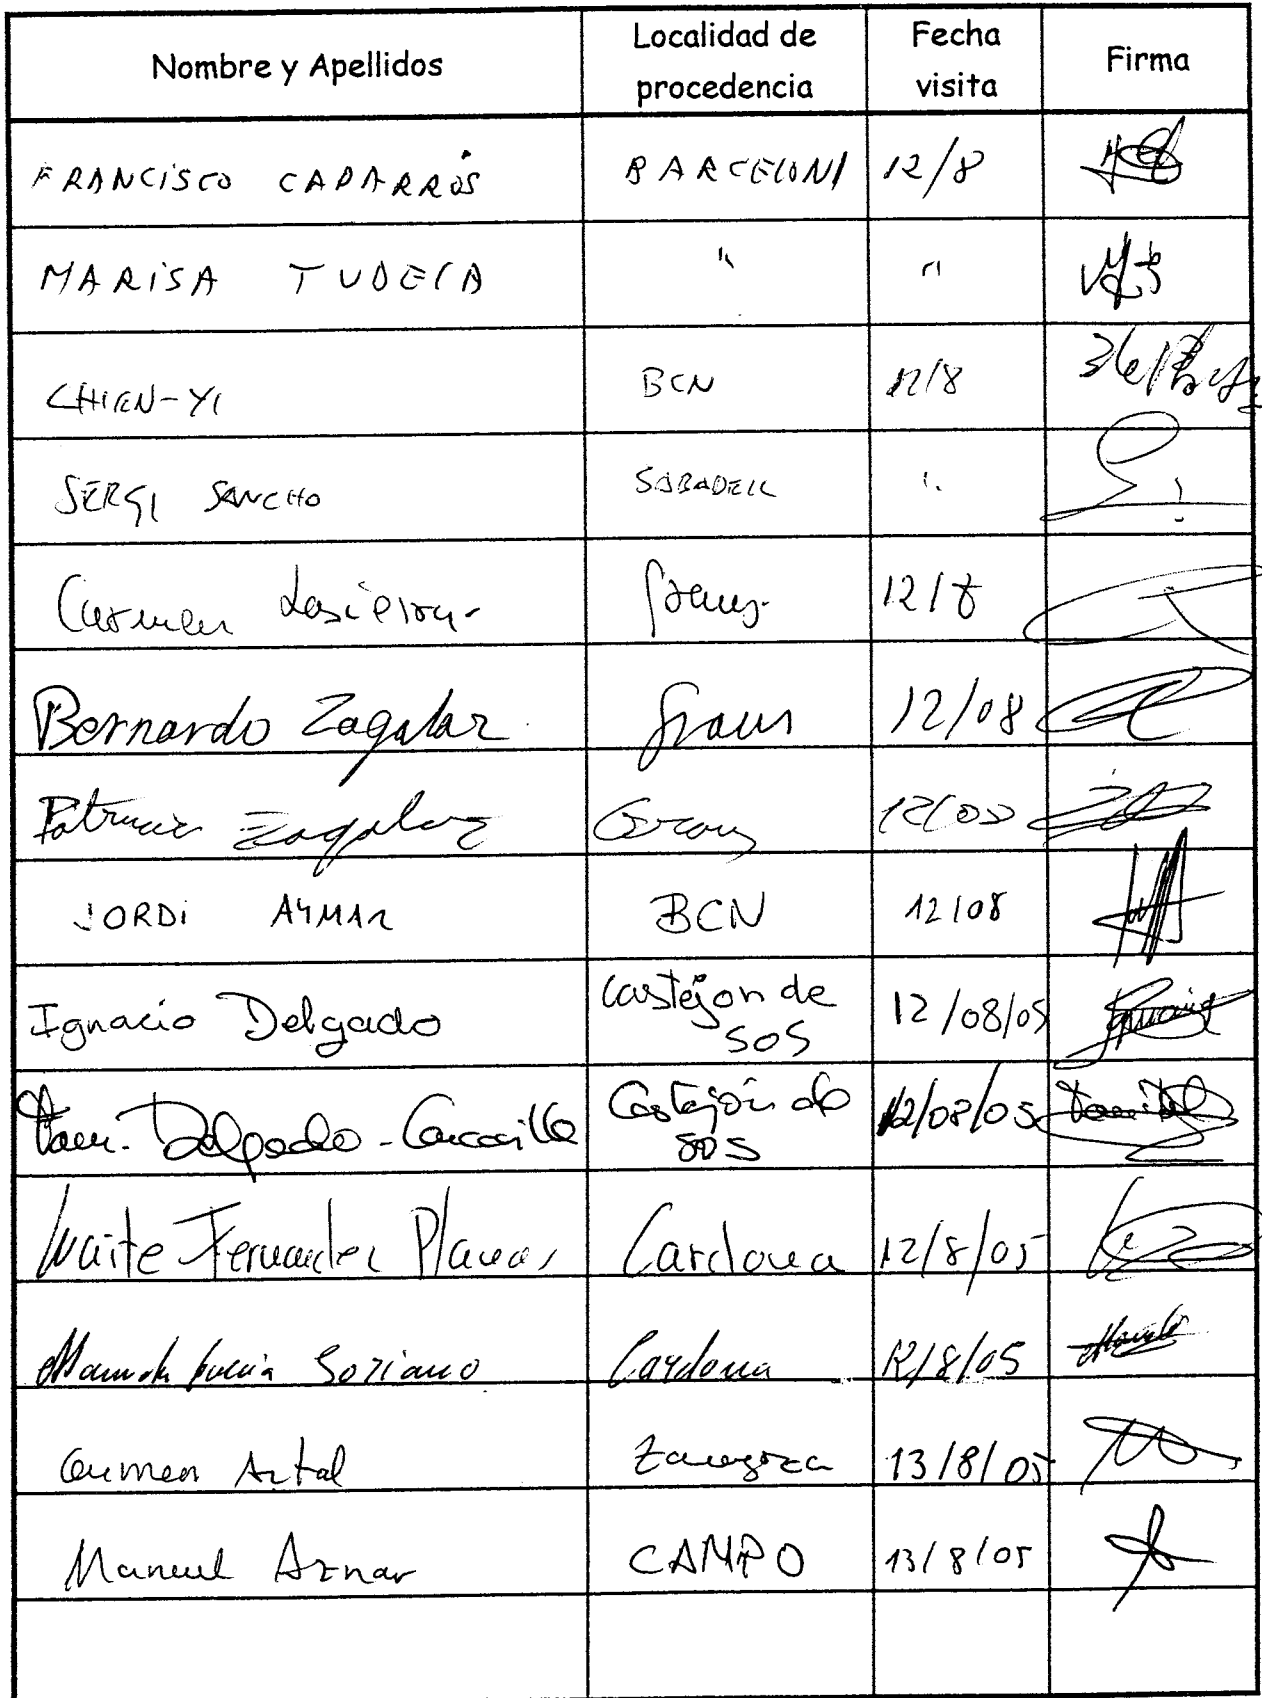 Nombre y Apellidos Localidad de procedencia Fecha visita Firma
FRANCISCO CAPARRÓS BARCELONA 12/8
MARISA TUDELA " "
CHIEN-YI BCN 12/8
SERGI SANCHO SABADELL "
Carmen Lasierra Graus 12/8
Bernardo Zagalaz Graus 12/08
Patricia Zagalaz Graus 12/08
JORDI AYMAR BCN 12/08
Ignacio Delgado Castejon de SOS 12/08/05
Delgado - Castejón de SOS 12/08/05
Maite Fernandez Planas Cardona 12/8/05
Soriano Cardona 12/8/05
Carmen Artal Zaragoza 13/8/05
Manuel Aznar CAMPO 13/8/05